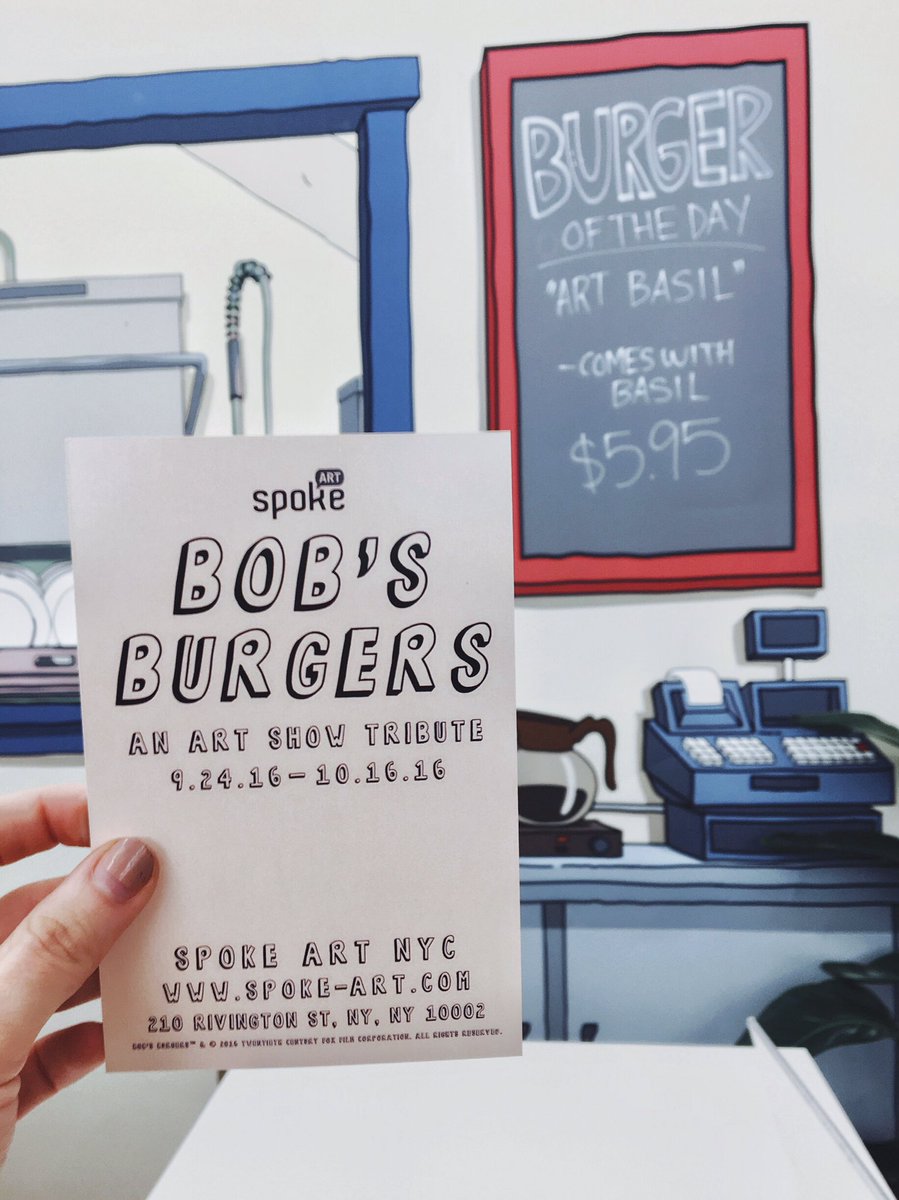 BURGER
OF THE DAY
"ART BASIL"
-COMES WITH
BASIL
$5.95
spoke ART
BOB'S
BURGERS
AN ART SHOW TRIBUTE
9.24.16-10.16.16
SPOKE ART NYC
WWW.SPOKE-ART.COM
210 RIVINGTON ST, NY, NY 10002
BOB'S BURGERS™ & © 2016 TWENTIETH CENTURY FOX FILM CORPORATION. ALL RIGHTS RESERVED.